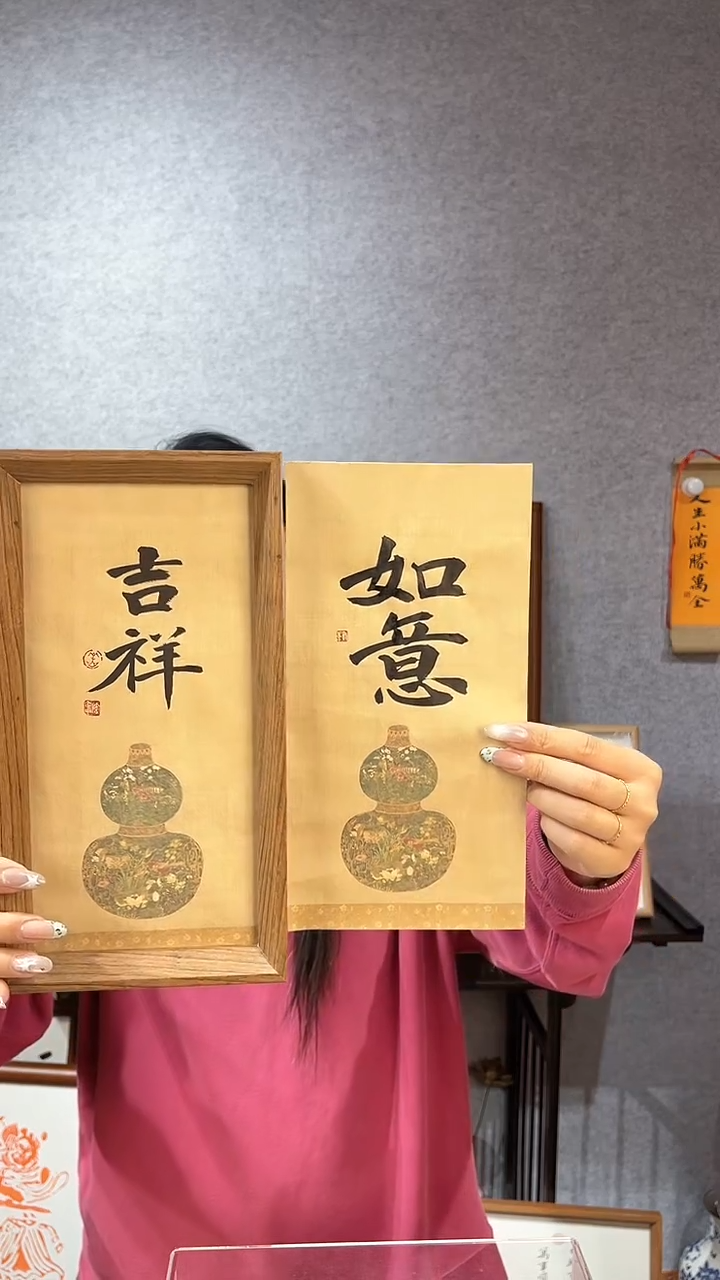 吉祥
如意
人生小滿勝萬全